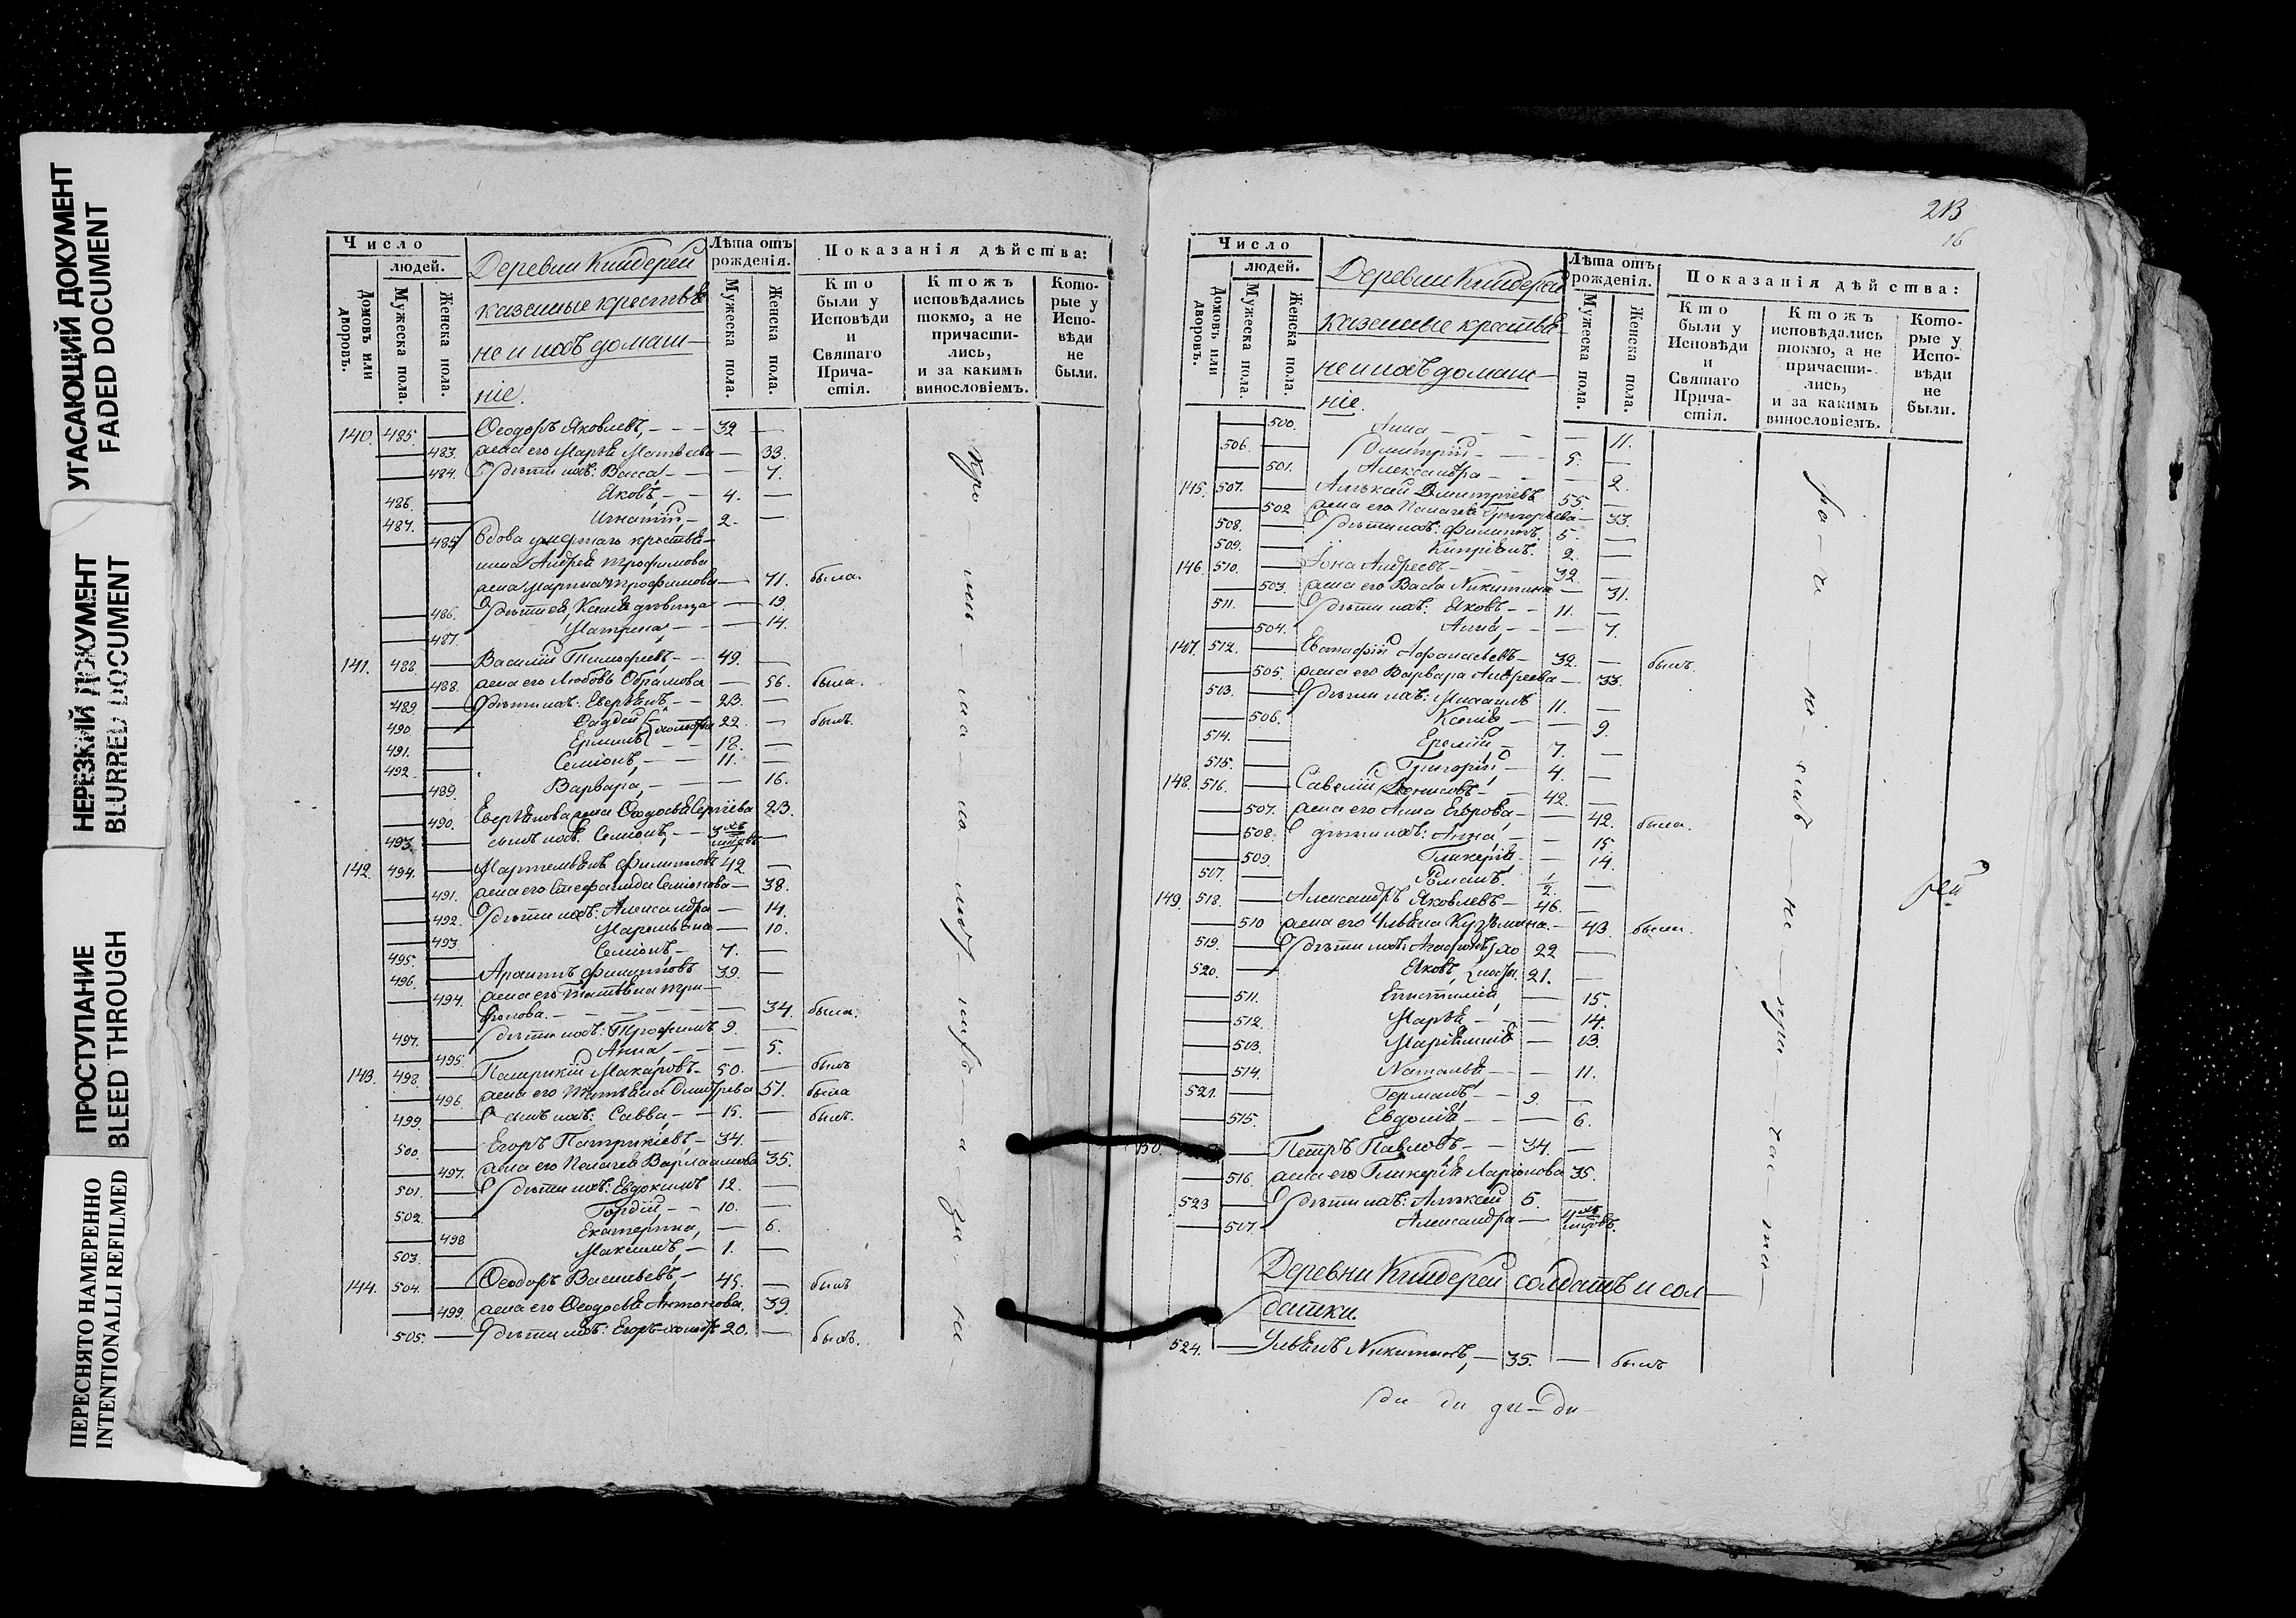 УГАСАЮЩИЙ ДОКУМЕНТ
FADED DOCUMENT
НЕРЕЗКИЙ ДОКУМЕНТ
BLURRED DOCUMENT
ПРОСТУПАНИЕ
BLEED THROUGH
ПЕРЕСНЯТО НАМЕРЕННО
INTENTIONALLI REFILMED
Число
людей.
Домовъ или дворовъ.
Мужеска пола.
Женска пола.
Деревни Киндерей
казенные крестья
не и ихъ домаш-
ніе.
Лѣта отъ рожденія.
Мужеска пола.
Женска пола.
Показанія дѣйства:
Кто были у Исповѣди и Святаго Прича- стія.
Ктожъ исповѣдались токмо, а не причасти- лись, и за какимъ винословіемъ.
Кото- рые у Испо- вѣди не были.
140. 485. Ѳеодоръ Яковлевъ, 32
483. жена его Марья Матвеева 33.
484. дѣти ихъ: Васса 7.
486. Яковъ 4.
487. Игнатій 2.
485 Вдова умершаго крестья-
нина Андрея Трофимова
жена Марина Трофимова 71. была.
486. дѣти ея, Ксенія дѣвица 19.
487. Матрена 14.
141. 488. Василій Тимофеевъ 49.
488. жена его Любовь Обрамова 56. была.
489. дѣти ихъ: 23.
490 Фаддей 22. былъ
491. Ермилъ 18.
492. Семіонъ, 11.
489. Варвара, 16.
490. жена Ѳеодосья Сергіева 23.
493. сынъ ихъ Семіонъ, 3
142. 494. Мартемьянъ Филиповъ 42
491. жена его Степанида Семіонова 38.
492. дѣти ихъ: Александра 14.
493. Маремьяна 10.
495. Семіонъ, 7.
496. Архиппъ Филиповъ 39.
494. жена его Татьяна Три-
фонова. 34. была.
497. дѣти ихъ: Трофимъ 9.
495. Анна 5.
143. 498. Патрикій Макаровъ 50. былъ
496. жена его Татьяна 51. была
499. сынъ ихъ: Савва, 15. былъ.
500. Егоръ Патрикіевъ 34.
497. жена его Пелагея Варлаамова 35.
501. дѣти ихъ: Евдокимъ 12.
502. Гордій 10.
498 Екатерина, 6.
503. Максимъ, 1.
144. 504. Ѳеодоръ Васильевъ, 45. былъ
499. жена его Ѳеодосья Антонова. 39.
505. дѣти ихъ: Егоръ 20. былъ.
213
16
Число
людей.
Домовъ или дворовъ.
Мужеска пола.
Женска пола.
Деревни Киндерей
казенные крестья-
не и ихъ домаш-
ніе.
Лѣта отъ рожденія.
Мужеска пола.
Женска пола.
Показанія дѣйства:
Кто были у Исповѣди и Святаго Прича- стія.
Ктожъ исповѣдались токмо, а не причасти- лись, и за какимъ винословіемъ.
Кото- рые у Испо- вѣди не были.
500. Анна 11.
506. Димитрій 5.
501. Александра 2.
145. 507. Алексѣй Димитріевъ 55.
502 жена его Пелагея Григорьева 33.
508. дѣти ихъ: Филиппъ. 5.
509. Кипріянъ. 2.
146. 510. Іона Андреевъ 32.
503. жена его Васса Никитина 31.
511. дѣти ихъ: Яковъ 11.
504. Анна, 7.
147. 512. Евстафій Афанасьевъ 32. былъ
505. жена его Варвара Андреева 33.
513. дѣти ихъ: Михаилъ 11.
506. Ксенія 9.
514. Еремій 7.
515. Григорій 4.
148. 516. Савелій Денисовъ 42.
507. жена его Анна Егорова, 42. была.
508. дѣти ихъ: Анна, 15.
509. Гликерія 14.
517. Романъ. 1/2.
149. 518. Александръ Яковлевъ 46.
510 жена его Ульяна Кузьмина. 43. были.
519. дѣти ихъ: Агафонъ 22
520. Яковъ, 21.
511. Епистимія, 15.
512. Марья 14.
513. Маріамнія 13.
514. Наталья 11.
521. Германъ, 9.
515. Евдокія 6.
150. Петръ Павловъ 34.
516. жена его Гликерія Ларіонова 35.
523 дѣти ихъ: Алексѣй 5.
517. Александра
Деревни Киндерей солдатъ и сол-
датки.
524. Ульянъ Никитинъ, 35. былъ